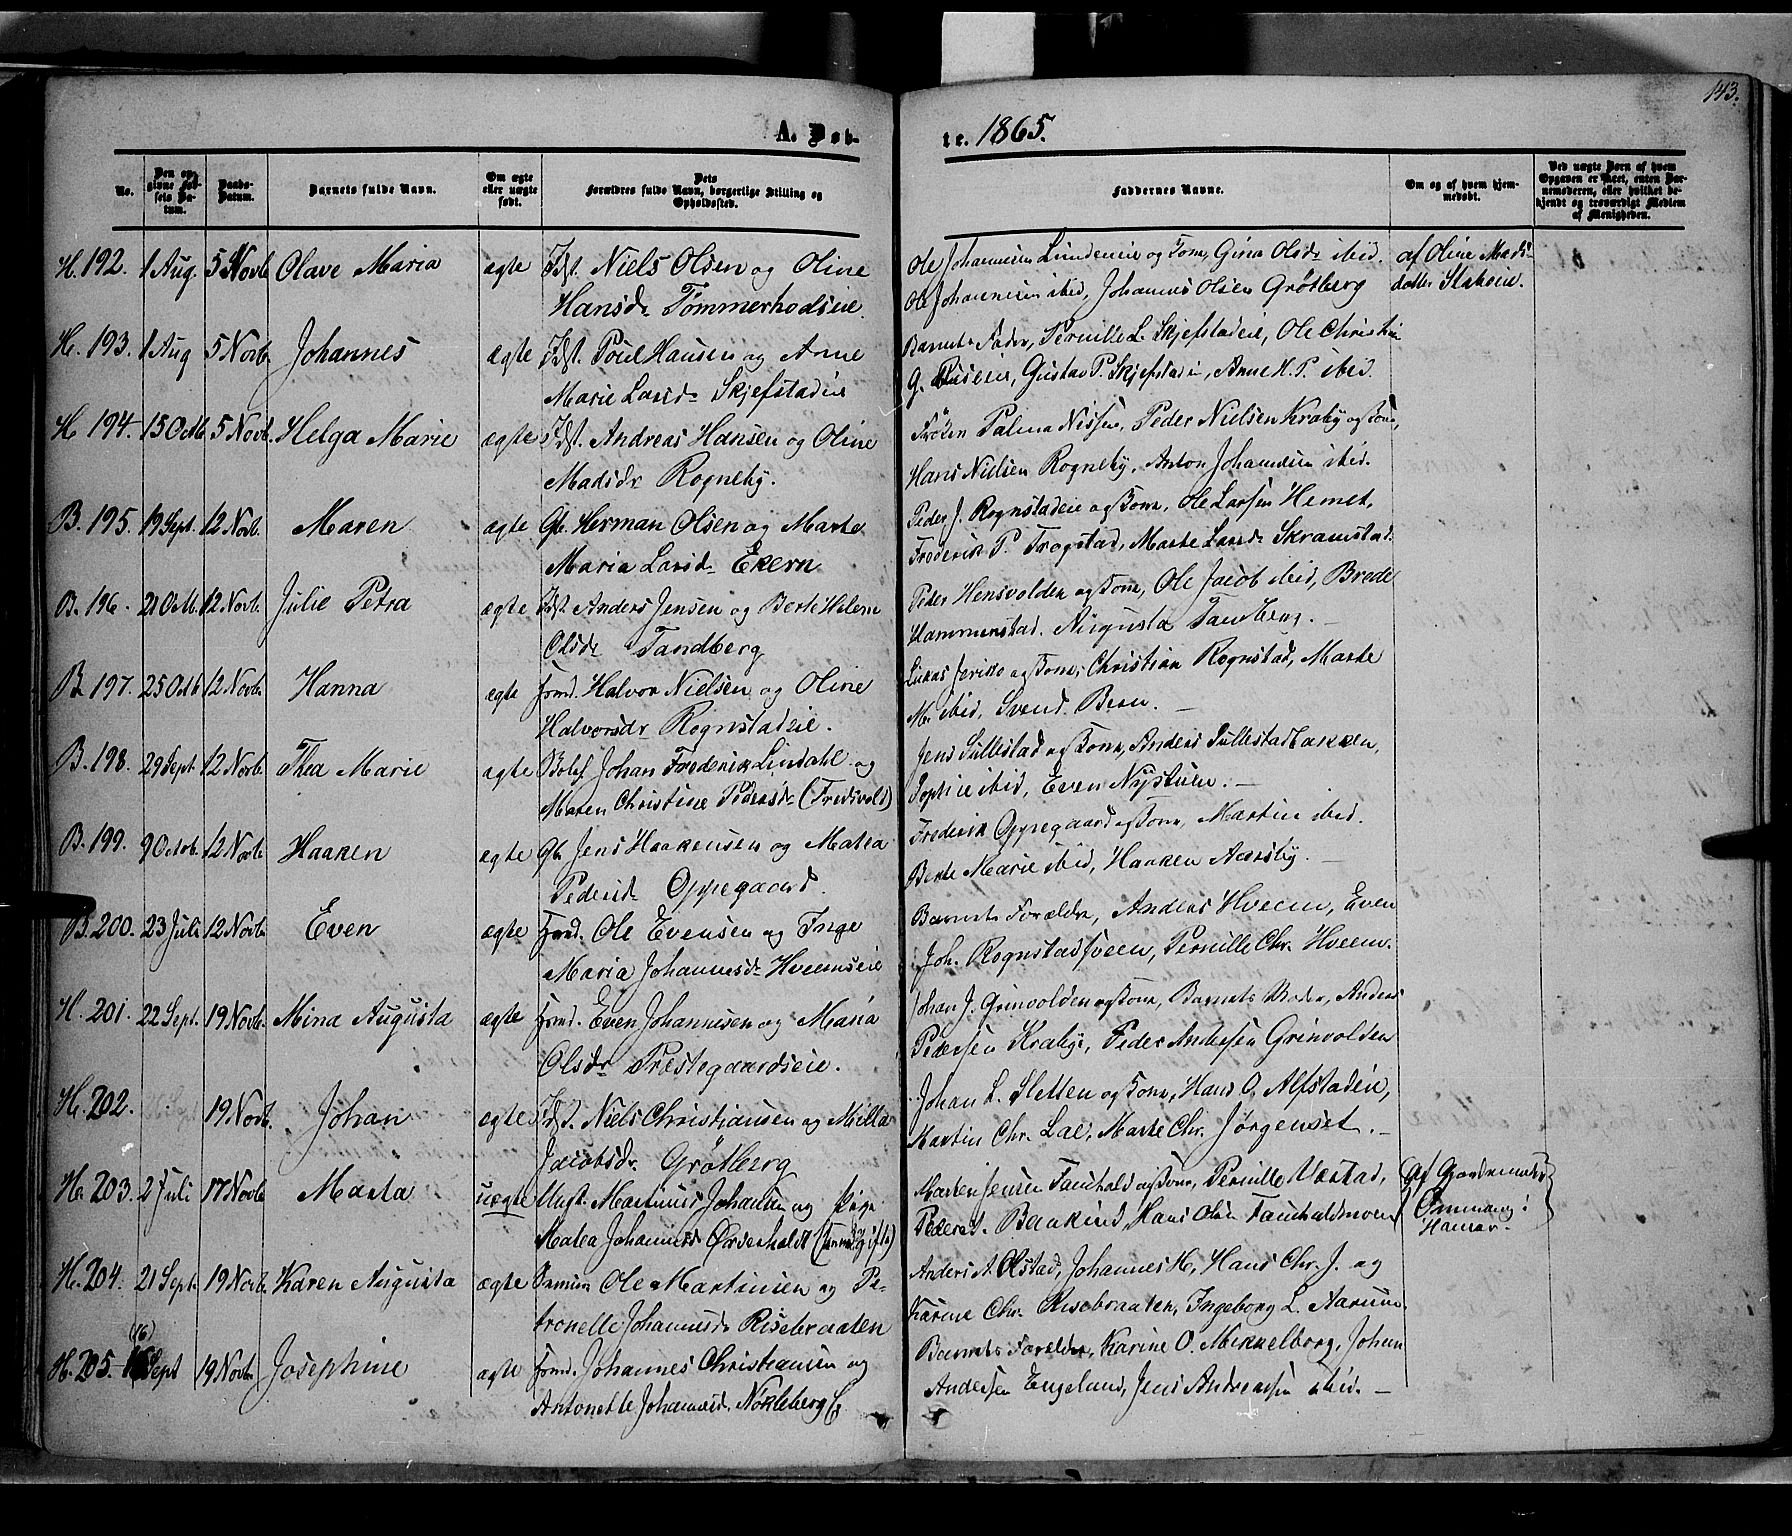 143.
A. Døb-
te. 1865.
No.
Den op-
givne Fød-
sels Da-
tum.
Daabs-
Datum.
Barnets fulde Navn.
Om ægte
eller uægte
født.
Dets
Forældres fulde Navn, borgerlige Stilling og
Opholdssted.
Faddernes Navne.
Om og af hvem hjem-
medøbt.
Ved uægte Børn af hvem
Opgaven er skeet, enten Bar-
nemoderen, eller hvilket be-
kjendt og troværdigt Medlem
af Menigheden.
H. 192. 1 Aug. 5 Novb. Olave Maria ægte Idst. Niels Olsen og Oline
Hansdr Tømmerhodseie.
Ole Johannesen Lundeneie og Kone, Gina Olsdr ibid.
Ole Johannesen ibid, Johannes Olsen Grøtberg
af Oline Mads-
datter Stakseie.
H. 193. 1 Aug 5 Novb. Johannes ægte Idst. Poul Hansen og Anne
Marie Larsdr Skjefstadeie
Barnets Fader, Pernille L. Skjefstadeie, Ole Christian
G. eie, Gustav P. Skjefstadeie, Anne K. P. ibid.
H. 194. 15 Octb. 5 Novb. Helga Marie ægte Idst. Andreas Hansen og Oline
Madsdr Rogneby.
Frøken Palma Nissen, Peder Nielsen Kraby og Kone,
Hans Nielsen Rogneby, Anton Johannesen ibid.
B. 195. 19 Sept. 12 Novb. Maren ægte Gb. Herman Olsen og Marte
Maria Larsdr Ekern
Peder J. Rognstadeie og Kone, Ole Larsen Hemet,
Frederik P. Trogstad, Marte Larsdr Skramstad.
B. 196. 21 Octb. 12 Novb. Julie Petra ægte Idst. Anders Jensen og Berte Helene
Olsdr Tandberg
Peder Hensvolden og Kone, Ole Jacob ibid, Brede
Hammerstad, Augusta Tandberg. —
B. 197. 25 Octb. 12 Novb. Hanna ægte Hmd. Halvor Nielsen og Oline
Halvorsdr Rognstadeie.
Lukas Jeriko og Kone, Christian Rognstad, Marte
M. ibid, Svend Bern. —
B. 198. 29 Sept. 12 Novb. Thea Marie ægte Johan Frederik Lindahl og
Maren Christine Pedersdr (Fredsvold)
Jens Sullestad og Kone, Anders Sullestadbakken,
Sophie ibid, Even Nystuen. —
B. 199. 9 Octob. 12 Novb. Haaken ægte Gb. Jens Haakensen og Matea
Pedersdr Oppegaard.
Frederik Oppegaard og Kone, Martin ibid.
Berte Marie ibid, Haaken Aarsby. —
B. 200. 23 Juli 12 Novb. Even ægte Hmd. Ole Evensen og Inge
Maria Johannesdr Hveemseie
Barnets Forældre, Anders Hveem, Even
Joh. Rognstadsveen, Pernille Chr. Hveem.
H. 201. 22 Sept. 19 Novb. Mina Augusta ægte Hmd. Even Johannesen og Maria
Olsdr Præstegaardseie.
Johan J. Grinvolden og Kone, Barnets Moder, Anders
Pedersen Kraby, Peder Andersen Grinvolden
H. 202. 19. Novb. Johan ægte Idst. Niels Christiansen og Milla
Jacobsdr Grøtberg
Johan L. Sletten og Kone, Hans O. Alfstadeie,
Martin Chr. Lae, Marte Chr. Jørgenset. —
H. 203. 2 Juli 17 Novb. Marta uægte Ungk. Martinus Johansen og Pige
Matea Johannesdr Ørdenholdt
Morten Jensen Fauchald og Kone, Pernille Værstad,
Pederst. Baakind, Hans Olsen Fauchaldmoen
(Af Gjordemoder
Ommang i
Hamar.
H. 204. 21 Sept. 19 Novb. Karen Augusta ægte Ole Martinsen og Pe-
tronelle Johannesdr Risebraaten
Anders A. Olstad, Johannes H, Hans Chr. J. og
Karine Chr. Risebraaten, Ingeborg L. Aarum.
H. 205. (16) Sept 19 Novb. Josephine ægte Hmd. Johannes Christiansen og
Antonette Johannesdr. Nøkleberg E.
Barnets Forældre, Karine O. Mikkelborg, Johan
Andersen Engeland, Jens Andreassen ibid. —